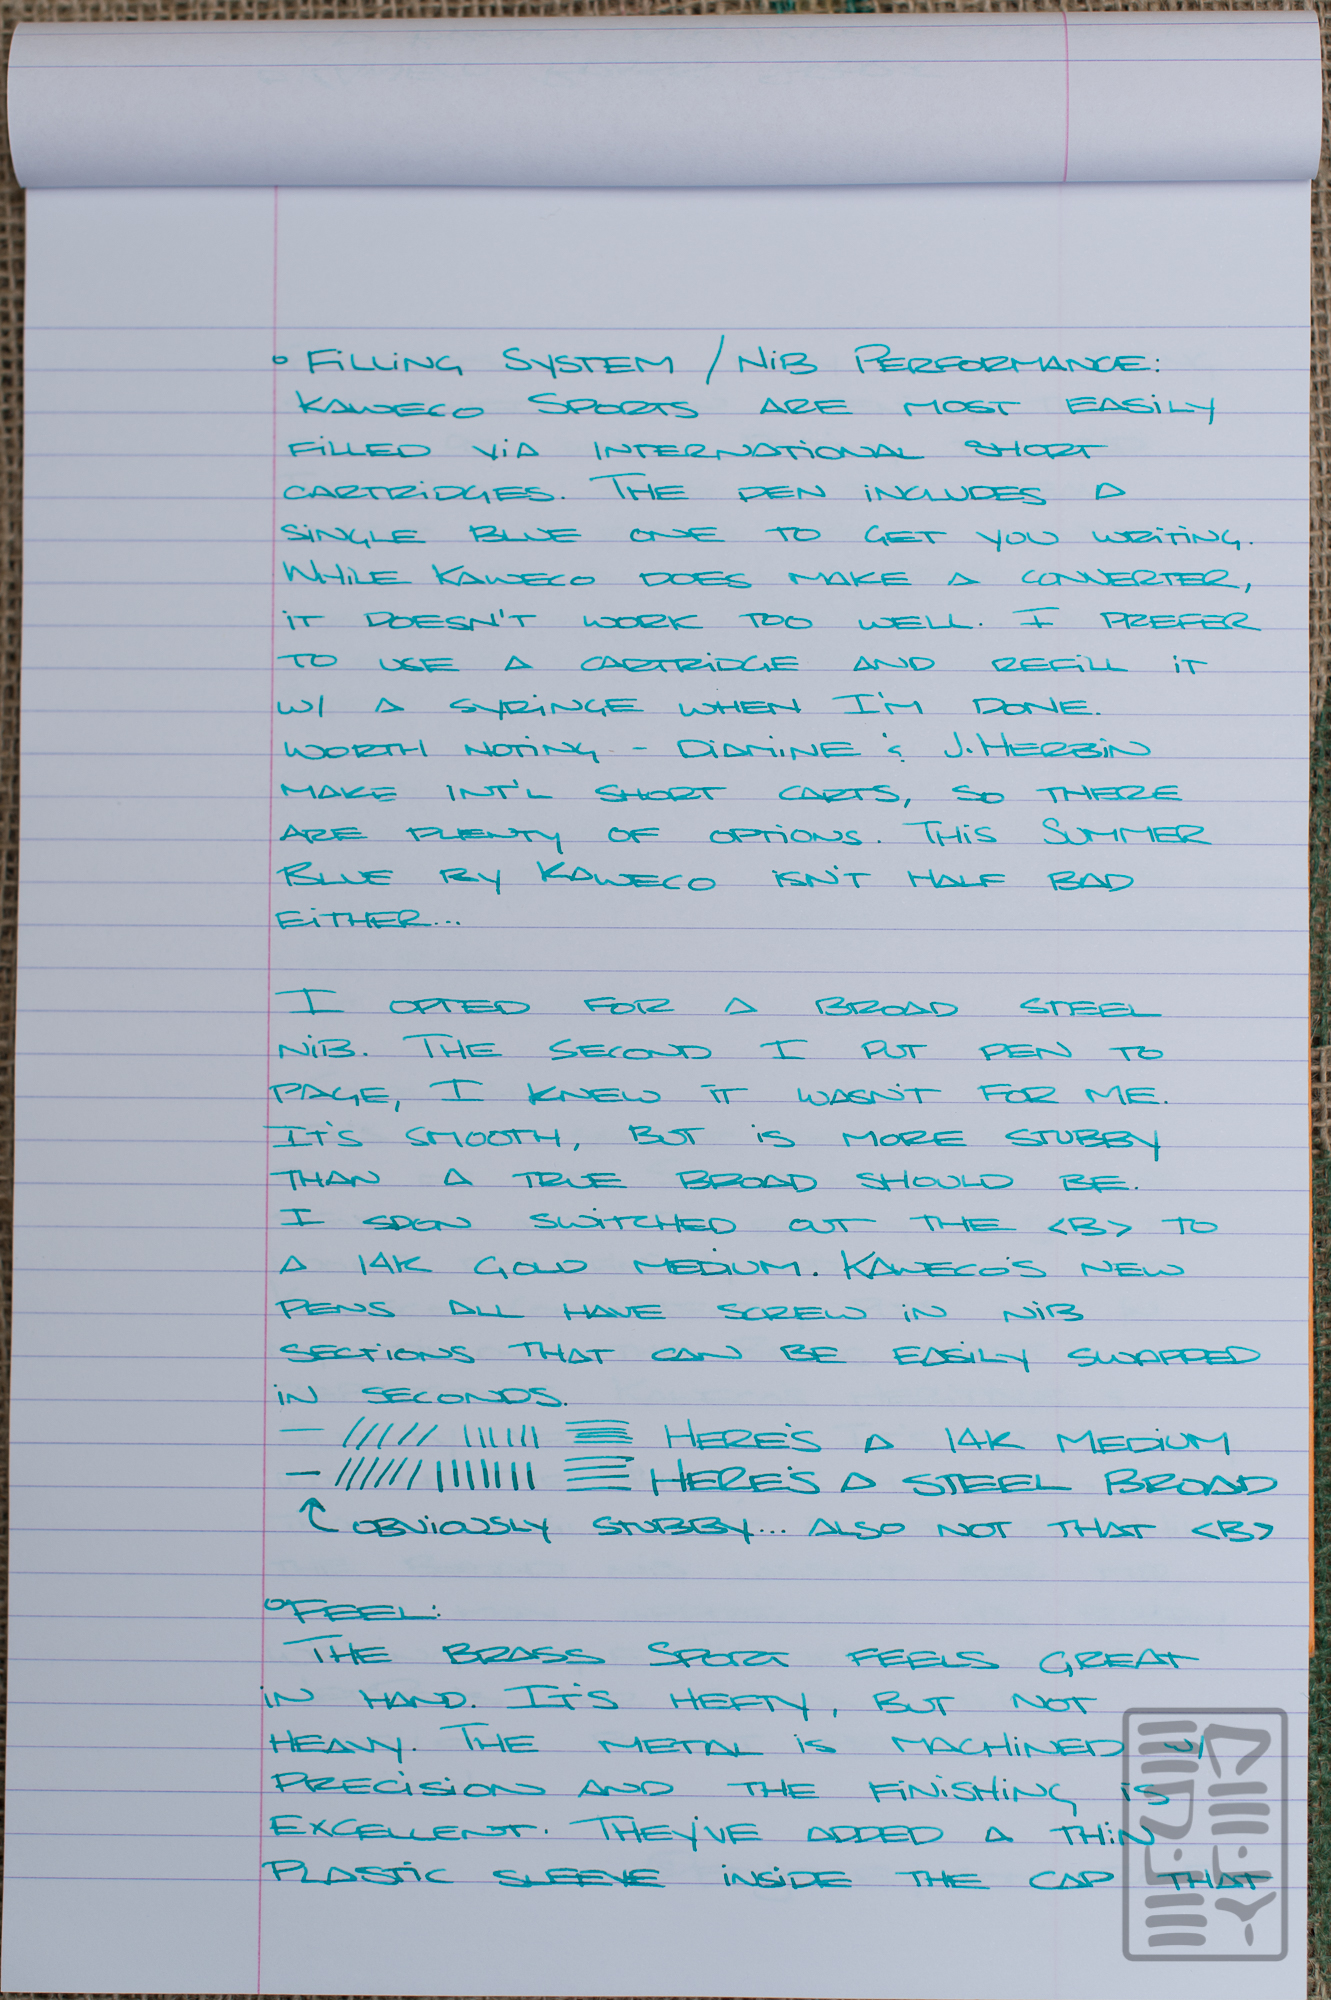 ° Filling System / Nib Performance:
Kaweco Sports are most easily
filled via international short
cartridges. The pen includes a
single blue one to get you writing.
While Kaweco does make a converter,
it doesn't work too well. I prefer
to use a cartridge and refill it
w/ a syringe when I'm done.
Worth noting - Diamine & J. Herbin
make int'l short carts, so there
are plenty of options. This Summer
Blue by Kaweco isn't half bad
either...
I opted for a broad steel
nib. The second I put pen to
page, I knew it wasn't for me.
It's smooth, but is more stubby
than a true broad should be.
I soon switched out the <B> to
a 14K gold medium. Kaweco's new
pens all have screw in nib
sections that can be easily swapped
in seconds.
Here's a 14K medium
Here's a steel broad
↑ obviously stubby... also not that <B>
° Feel:
The Brass Sport feels great
in hand. It's hefty, but not
heavy. The metal is machined w/
precision and the finishing is
excellent. They've added a thin
plastic sleeve inside the cap that